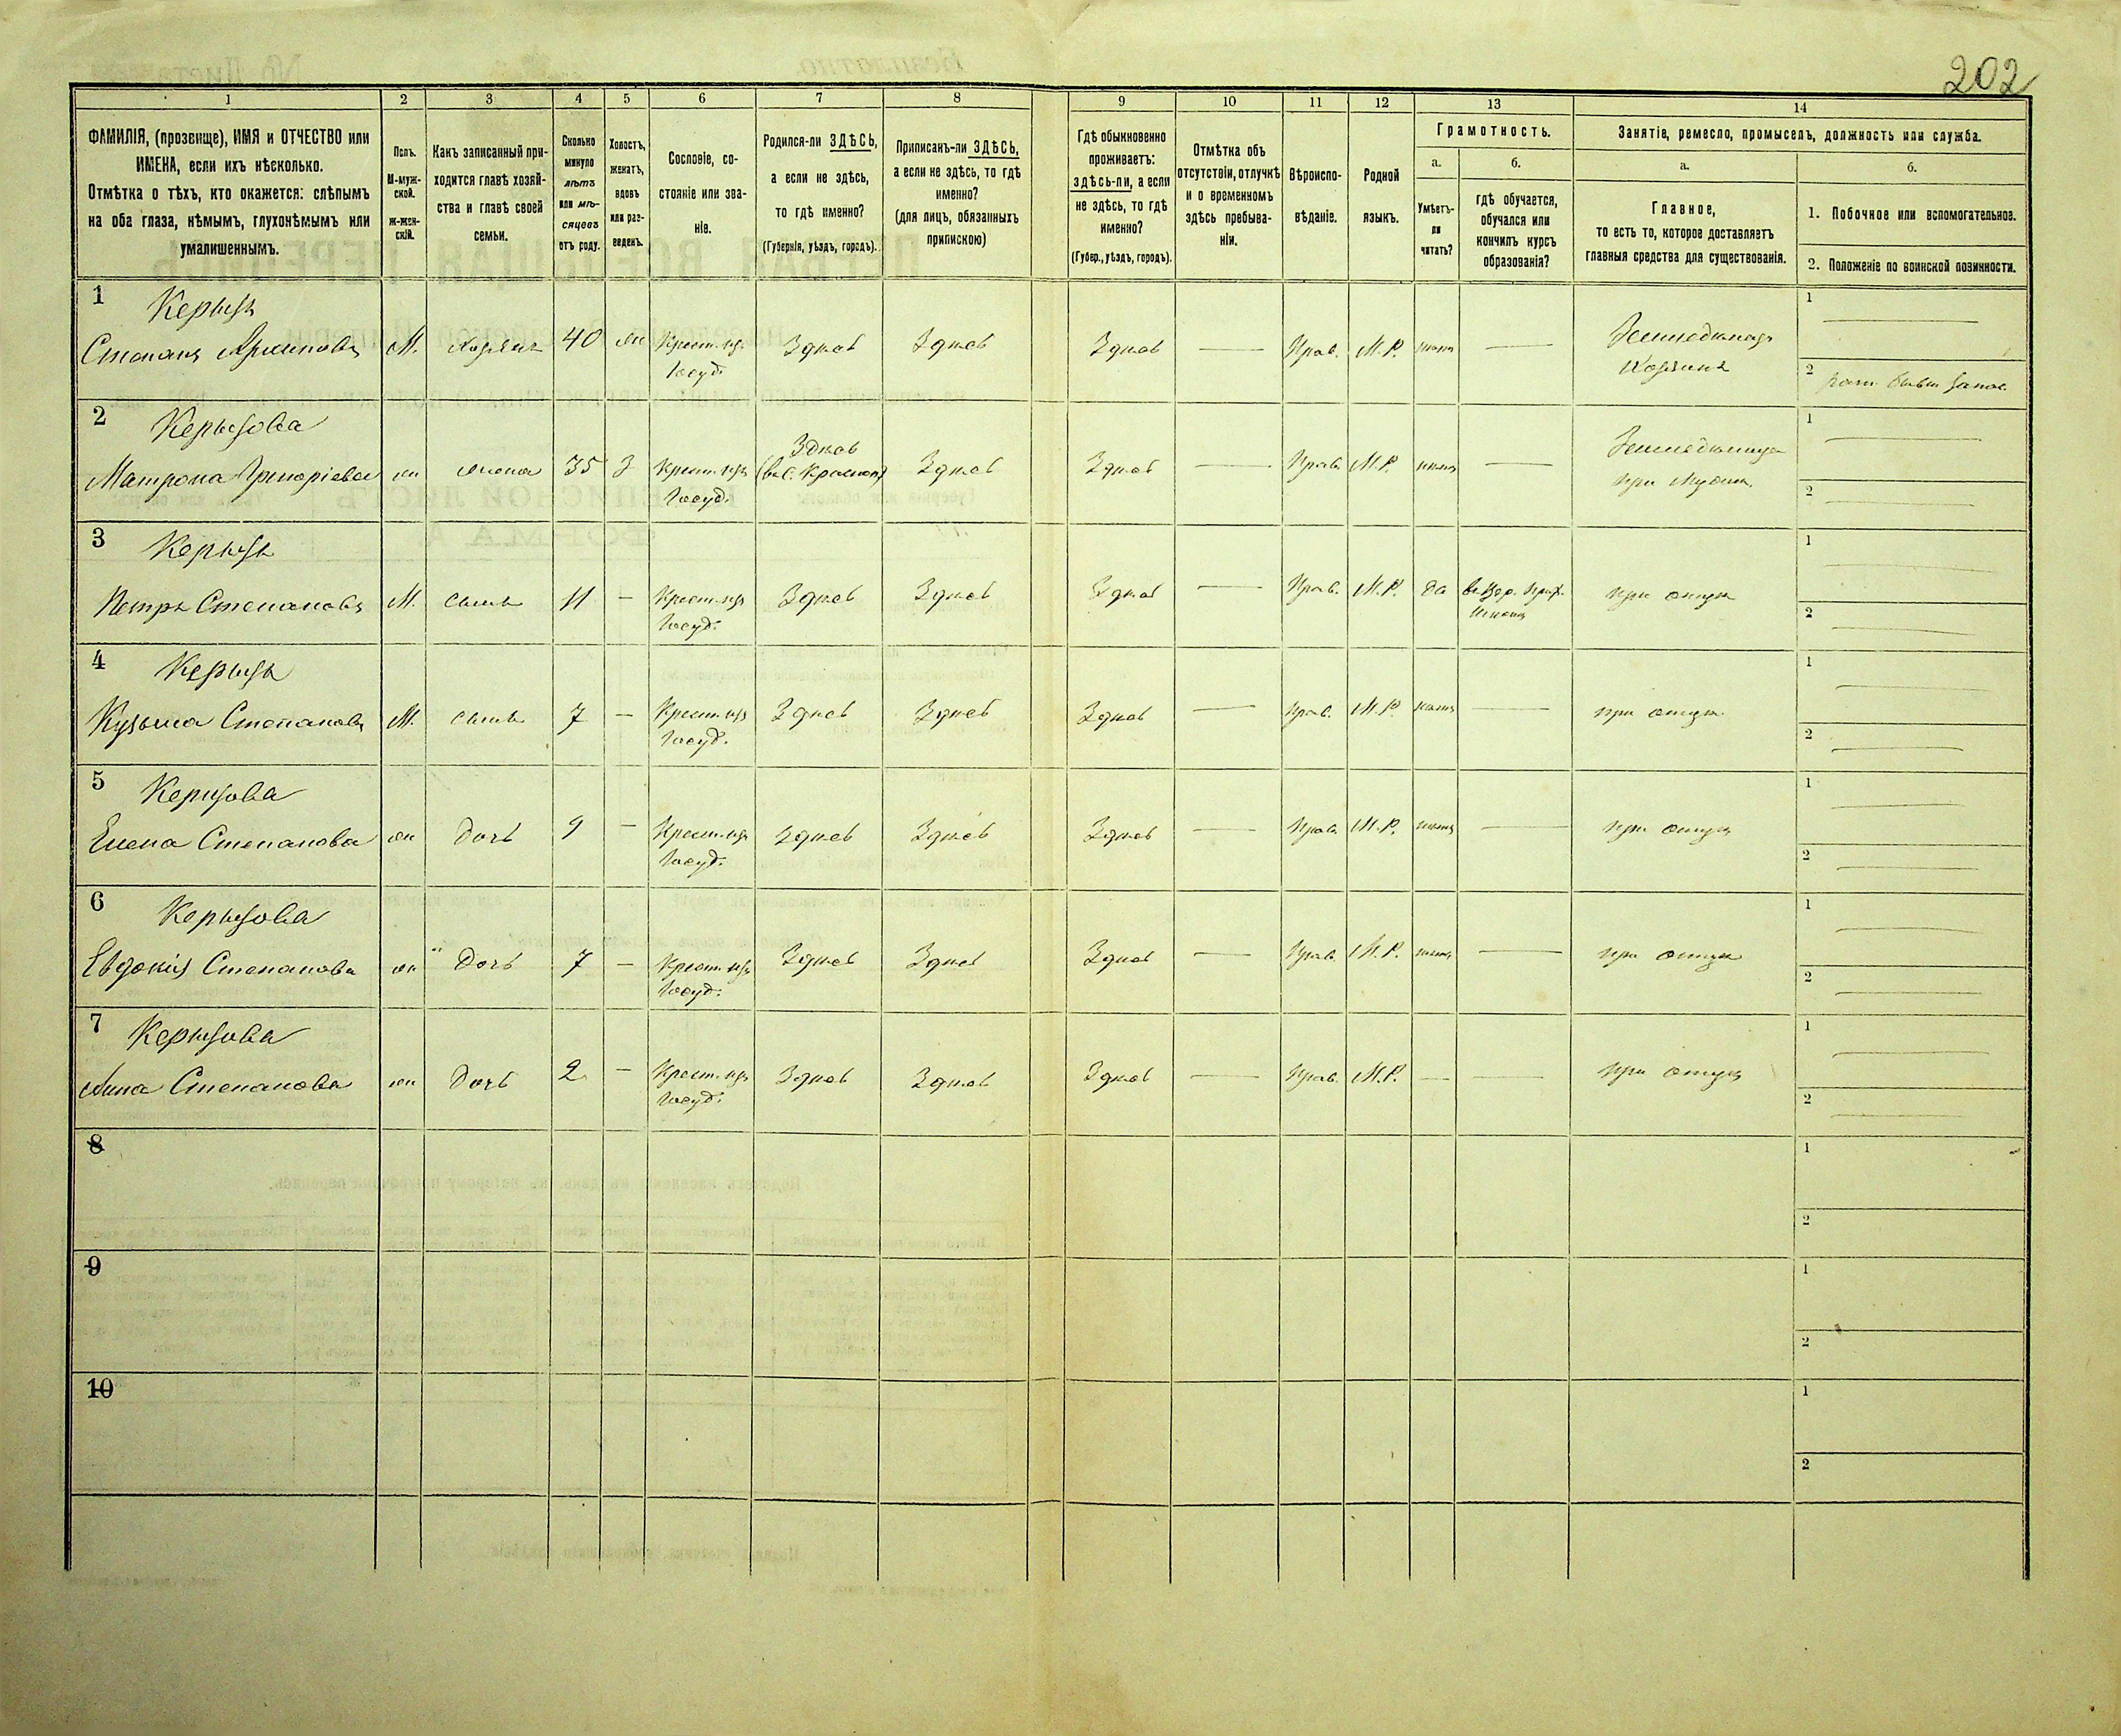 202
1
2
3
4
5
6
7
8
9
10
11
12
13
14
ФАМИЛІЯ, (прозвище), ИМЯ и ОТЧЕСТВО или
ИМЕНА, если ихъ нѣсколько.
Отмѣтка о тѣхъ, кто окажется: слѣпымъ
на оба глаза, нѣмымъ, глухонѣмымъ или
умалишеннымъ.
Полъ.
М-муж-
ской.
Ж-жен-
скій.
Какъ записанный при-
ходится главѣ хозяй-
ства и главѣ своей
семьи.
Сколько
минуло
лѣтъ
или мѣ-
сяцевъ
отъ роду.
Холостъ,
женатъ,
вдовъ
или раз-
веденъ.
Сословіе, со-
стояніе или зва-
ніе.
Родился-ли ЗДѢСЬ,
а если не здѣсь,
то гдѣ именно?
(Губернія, уѣздъ, городъ).
Приписанъ-ли ЗДѢСЬ,
а если не здѣсь, то гдѣ
именно?
(для лицъ, обязанныхъ
припискою)
Гдѣ обыкновенно
проживаетъ:
здѣсь-ли, а если
не здѣсь, то гдѣ
именно?
(Губер., уѣздъ, городъ).
Отмѣтка объ
отсутствіи, отлучкѣ
и о временномъ
здѣсь пребыва-
ніи.
Вѣроиспо-
вѣданіе.
Родной
языкъ.
Грамотность.
а.
Умѣетъ-
ли
читать?
б.
гдѣ обучается,
обучался или
кончилъ курсъ
образованія?
Занятіе, ремесло, промыселъ, должность или служба.
а.
Главное,
то есть то, которое доставляетъ
главныя средства для существованія.
б.
1. Побочное или вспомогательное.
2. Положеніе по воинской повинности.
1 Керызъ
Степанъ М. хозяинъ 40 Крест. изъ Госуд. Здѣсь Здѣсь Здѣсь — Прав. М.Р. нѣтъ — Земледѣлецъ Хозяинъ
1
2
2 Керызова
Матрона Григоріева жена 35 З Крест. изъ Госуд. Здѣсь Здѣсь Здѣсь — Прав. М.Р. нѣтъ — Земледѣлица при
1
2
3 Керызъ
Петръ Степановъ М. сынъ 11 — Крест. изъ Госуд. Здѣсь Здѣсь Здѣсь — Прав. М.Р. да при отцѣ
1
2
4 Керызъ
Кузьма Степановъ М. сынъ 7 — Крест. изъ Госуд. Здѣсь Здѣсь Здѣсь — Прав. М.Р. нѣтъ — при отцѣ
1
2
5 Керызова
Елена Степанова ж дочь 9 — Крест. изъ Госуд. Здѣсь Здѣсь Здѣсь — Прав. М.Р. нѣтъ — при отцѣ
1
2
6 Керызова
Евдокія Степанова ж дочь 7 — Крест. изъ Госуд. Здѣсь Здѣсь Здѣсь — Прав. М.Р. нѣтъ — при отцѣ
1
2
7 Керызова
Степанова ж дочь 2 — Крест. изъ Госуд. Здѣсь Здѣсь Здѣсь — Прав. М.Р. — — при отцѣ
1
2
8
1
2
9
1
2
10
1
2